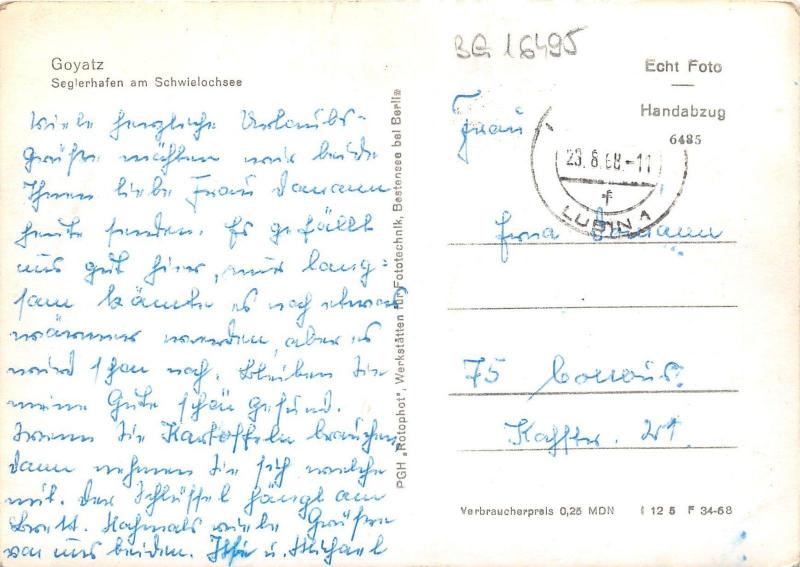 BG 16495
Goyatz
Seglerhafen am Schwielochsee
Viele herzliche Urlaubs-
Grüße möchten wir beide
Ihnen liebe Frau Domann
heute senden. Es gefällt
uns gut hier, nur lang-
sam könnte es noch etwas
wärmer werden, aber es
wird schon noch. Bleiben Sie
meine Gute schön gesund.
Wenn Sie Kartoffeln brauchen,
dann nehmen Sie sich welche
mit. Der Schlüssel hängt am
Brett. Nochmals viele Grüße
von uns beiden. Ilse u. Michael
PGH „Rotophot", Werkstätten für Fototechnik, Bestensee bei Berlin
Echt Foto
Handabzug
6485
23.8.68.-11
LUBIN 1
Frau
Erna Domann
75 Cottbus
21
Verbraucherpreis 0,25 MDN I 12 5 F 34-68